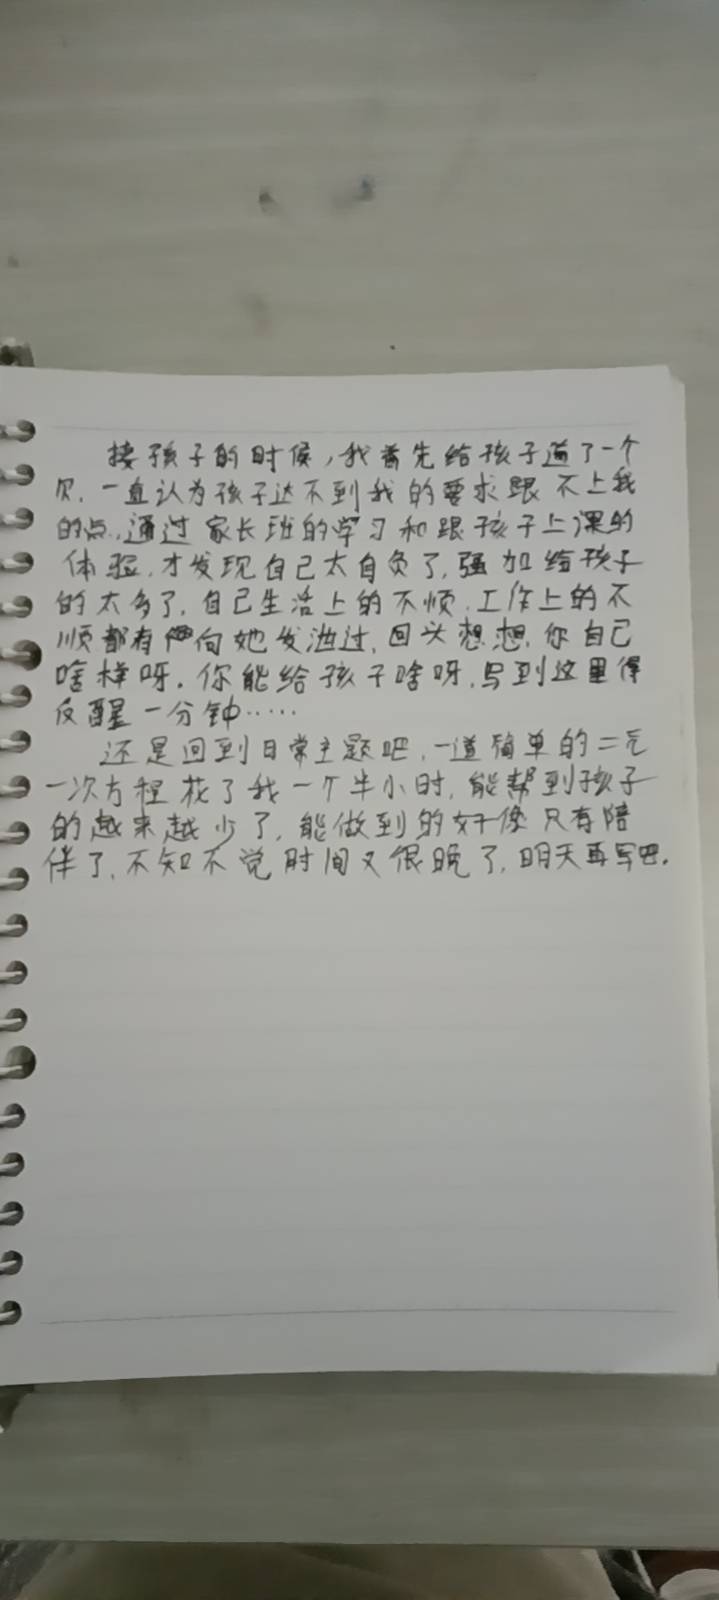 接孩子的时候，我首先给孩子道了一个
欠，一直认为孩子达不到我的要求跟不上我
的点，通过家长班的学习和跟孩子上课的
体验，才发现自己太自负了，强加给孩子
的太多了，自己生活上的不顺，工作上的不
顺都有向她发泄过，回头想想，你自己
啥样呀。你能给孩子啥呀，写到这里得
反醒一分钟……
还是回到日常主题吧，一道简单的二元
一次方程花了我一个半小时，能帮到孩子
的越来越少了，能做到的好像只有陪
伴了，不知不觉时间又很晚了，明天再写吧。